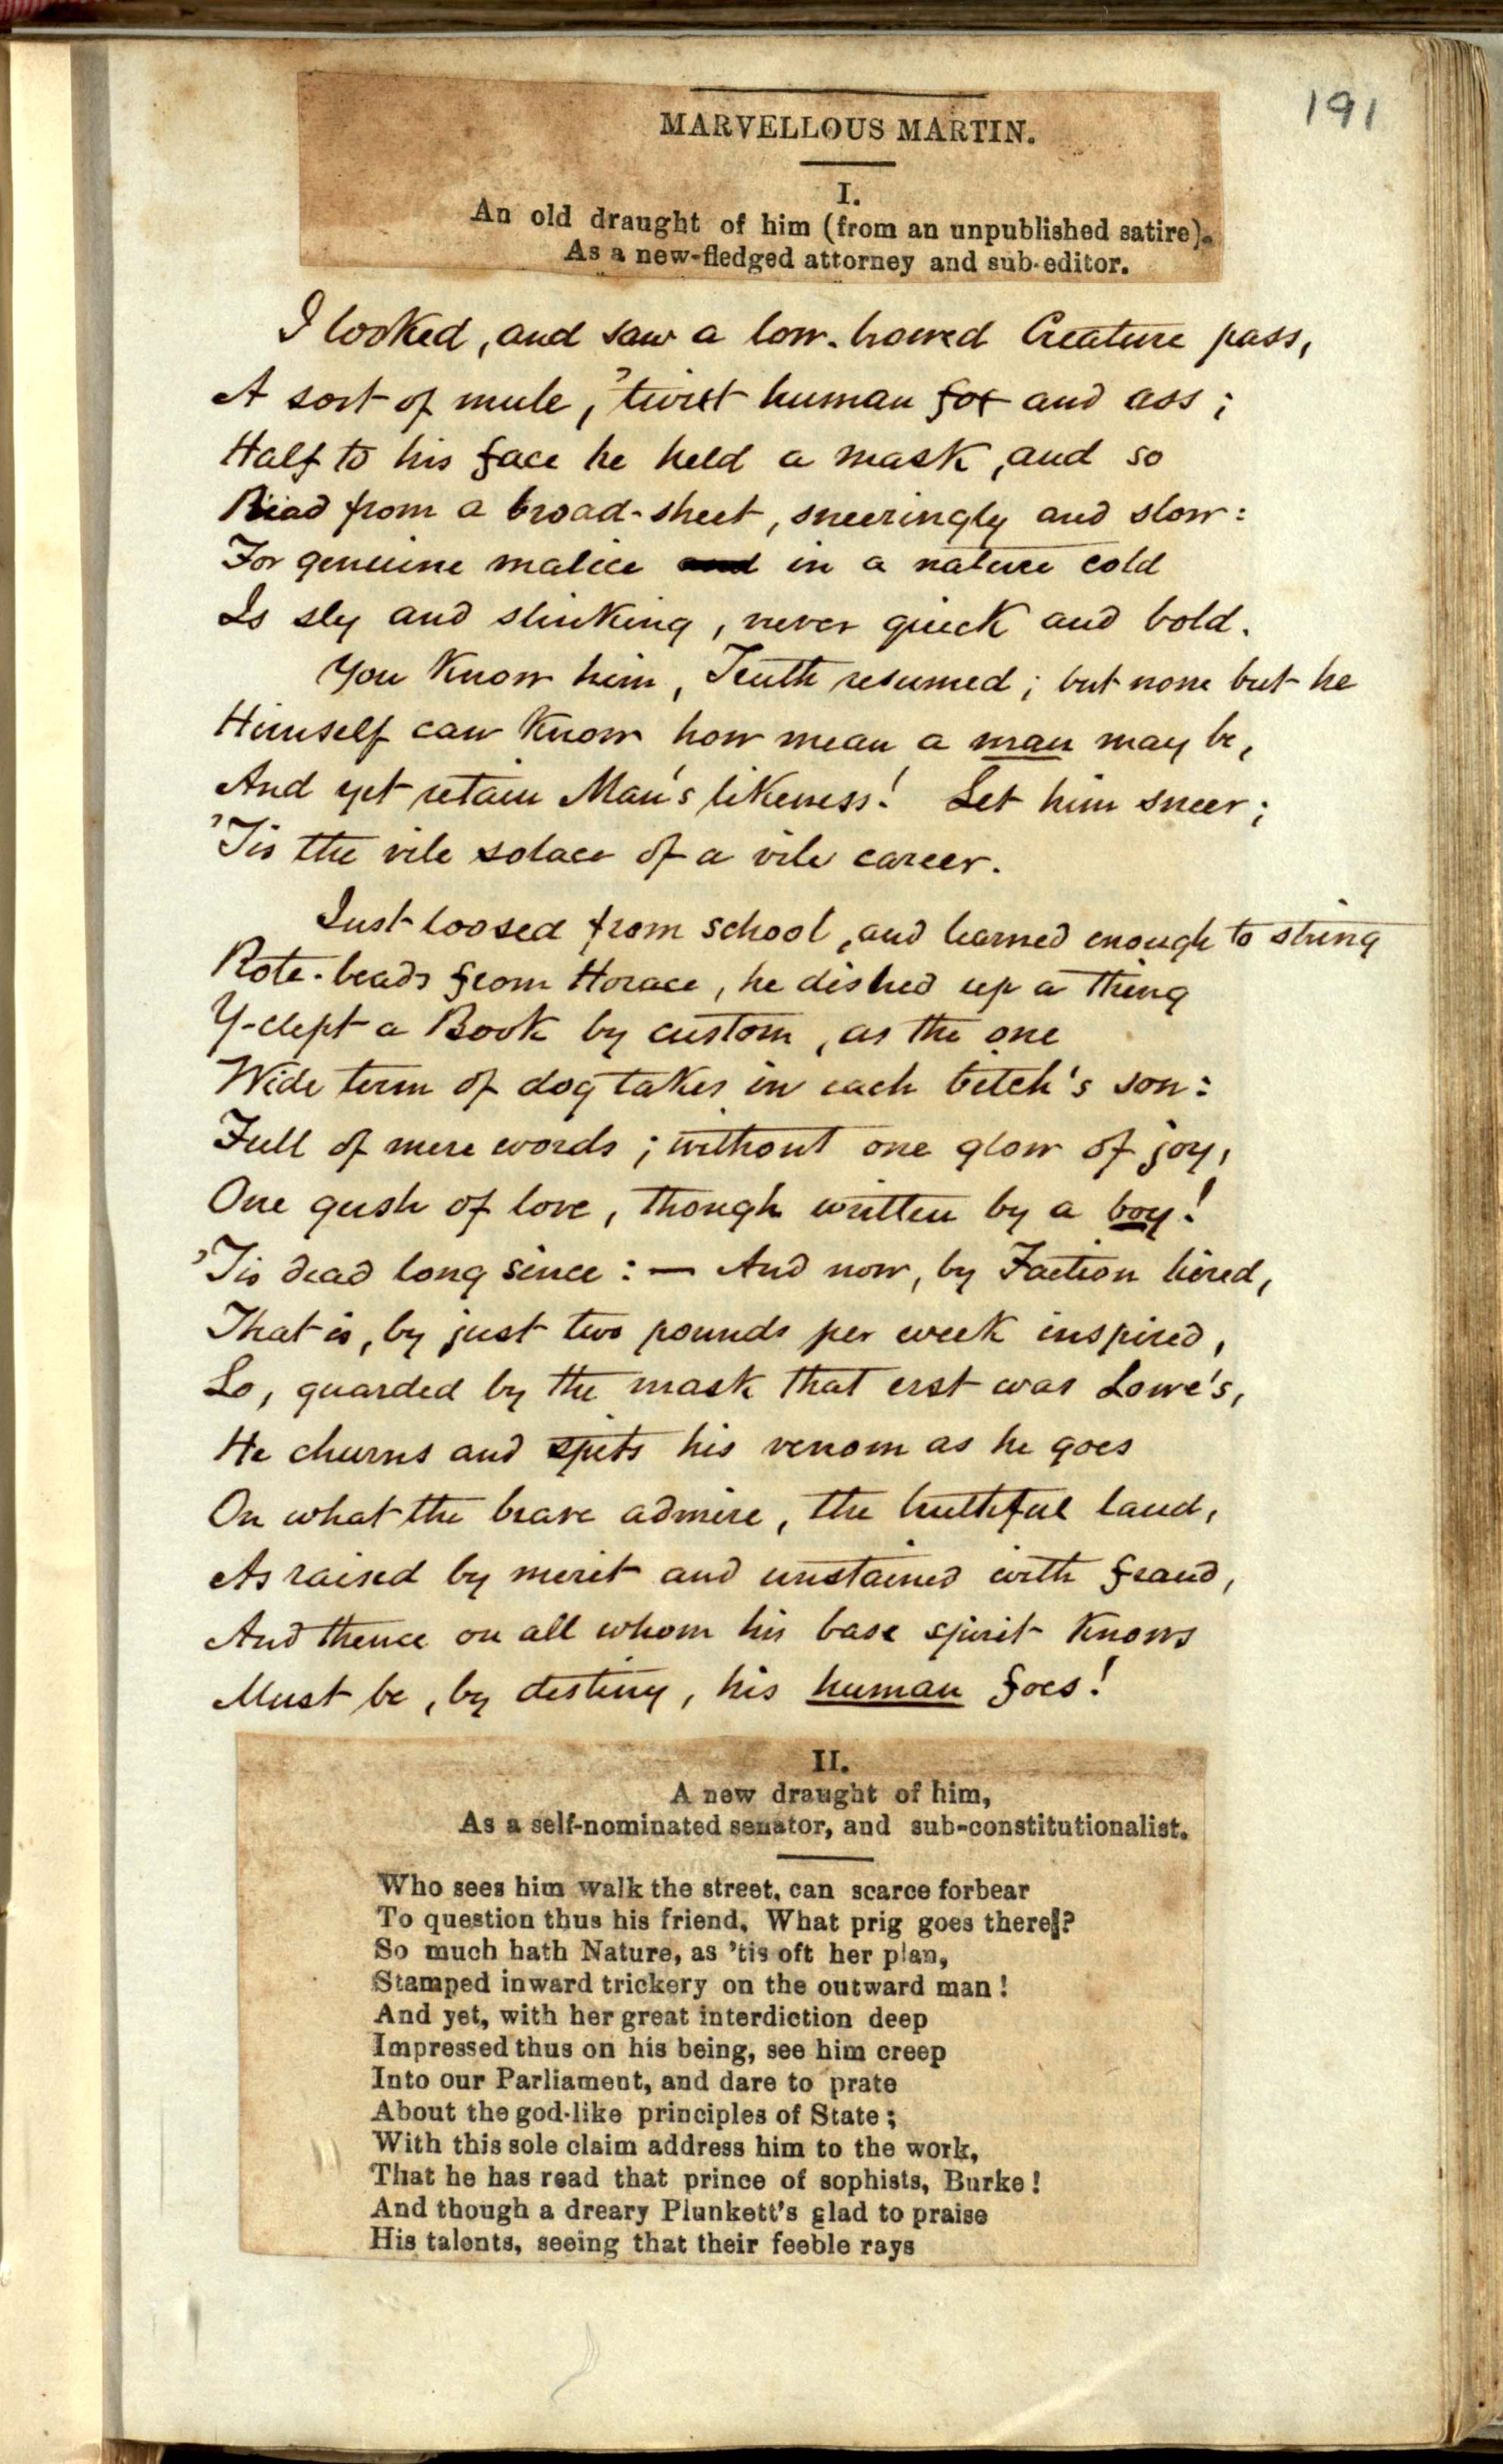 191
MARVELLOUS MARTIN.
I.
An old draught of him (from an unpublished satire).
As a new-fledged attorney and sub-editor.
I looked, and saw a low-browed Creature pass,
A sort of mule, 'twixt human fox and ass;
Half to his face he held a mask, and so
Read from a broad-sheet, sneeringly and slow:
For genuine malice in a nature cold
Is sly and slinking, never quick and bold.
You know him, Truth resumed; but none but he
Himself can know how mean a man may be,
And yet retain Man's likeness! Let him sneer;
'Tis the vile solace of a vile career.
Just loosed from school, and learned enough to string
Rote-beads from Horace, he dished up a thing
Y-clept a Book by custom, as the one
Wide term of dog takes in each bitch's son:
Full of mere words; without one glow of joy,
One gush of love, though written by a boy!
'Tis dead long since: — And now, by Faction hired,
That is, by just two pounds per week inspired,
Lo, guarded by the mask that erst was Lowe's,
He churns and spits his venom as he goes
On what the brave admire, the truthful laud,
As raised by merit and unstained with fraud,
And thence on all whom his base spirit knows
Must be, by destiny, his human foes!
II.
A new draught of him,
As a self-nominated senator, and sub-constitutionalist.
Who sees him walk the street, can scarce forbear
To question thus his friend, What prig goes there?
So much hath Nature, as 'tis oft her plan,
Stamped inward trickery on the outward man!
And yet, with her great interdiction deep
Impressed thus on his being, see him creep
Into our Parliament, and dare to prate
About the god-like principles of State;
With this sole claim address him to the work,
That he has read that prince of sophists, Burke!
And though a dreary Plunkett's glad to praise
His talents, seeing that their feeble rays